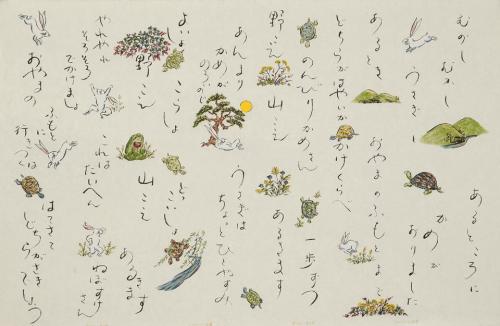 むかし むかし
あるところに
うさぎと
かめが
ありました
あるとき
おやまのふもとまで
どちらがはやいか
かけくらべ
のんびりかめさん
一歩ずつ
野こえ 山こえ
あるきます
あんまり
かめが
のろいので
うさぎは
ちょっとひとやすみ
よいしょ
こらしょ
どっこいしょ
野こえ
山こえ
あるきます
やれやれ
そろそろ
でかけましょ
これは
たいへん
ねぼすけさん
おやまの
ふもとに
行ってみれば
はてさて
どちらがさきでしょう